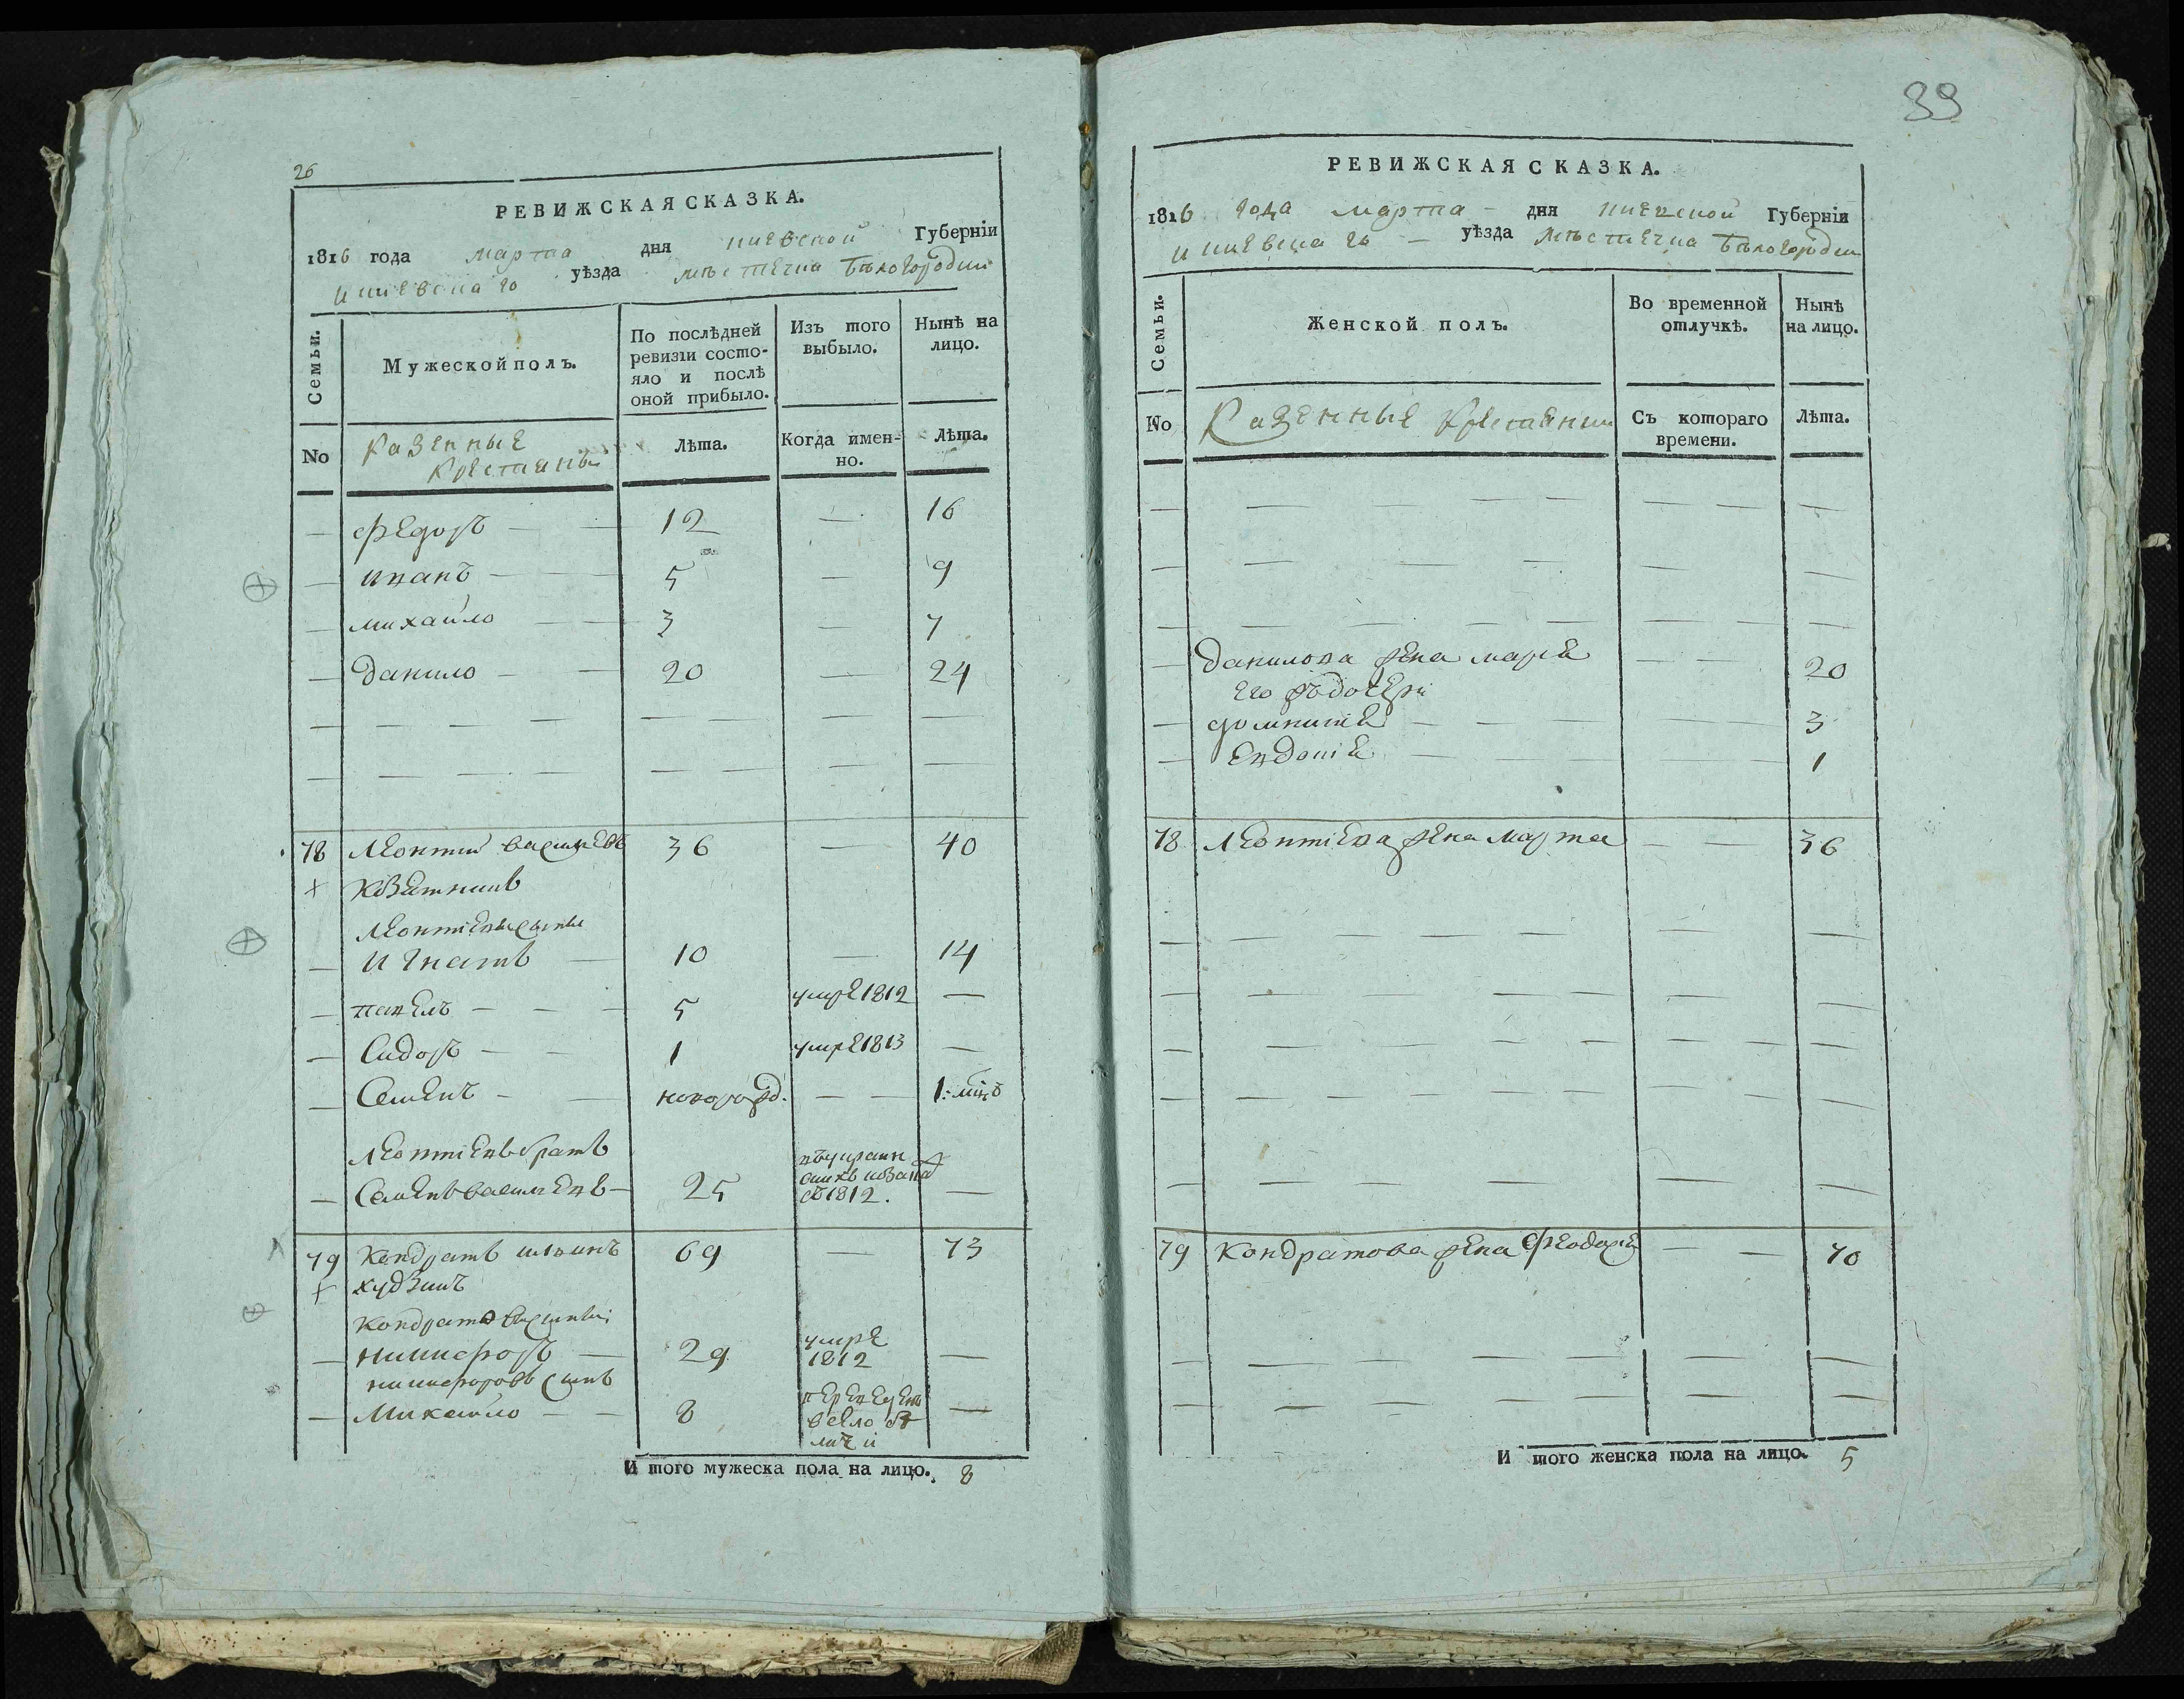 26
РЕВИЖСКАЯ СКАЗКА.
1816 года марта дня киевской Губерніи
и киевскаго уѣзда мѣстечка Бѣлогородки
Семьи.
Мужеской полъ.
По послѣдней ревизіи состо-
яло и послѣ
оной прибыло.
Изъ того
выбыло.
Нынѣ на
лицо.
No
Казенные
крестяны
Лѣта.
Когда имен-
но.
Лѣта.
— Федоръ — — 12 — 16
— иванъ — — 5 — 9
— михайло — — 3 — 7
— данило — — 20 — 24
78 Леонтий василиевъ 36 — 40
+
Леонтіевы сыны
— Игнатъ — 10 — 14
— павелъ — — 5 умре 1812 —
— Сидоръ — — 1 умре 1813 —
— Семенъ — — новорожд. — — 1: мцъ
Леонтіевъ братъ
— Семенъ василиевъ — 25 въ украин
скихъ козака
съ 1812. —
79 Кондратъ илинъ 69 — 73
+ худзикъ
Кондратовы сыны
— никифоръ — 29 умре
1812 —
никифоровъ сынъ
— Михайло — — 8 переведенъ
въ село
личи —
И того мужеска пола на лицо. 8
39
РЕВИЖСКАЯ СКАЗКА.
1816 года марта — дня киевской Губерніи
и киевскаго — уѣзда мѣстечка Бѣлогородки
Семьи.
Женской полъ.
Во временной
отлучкѣ.
Нынѣ
на лицо.
No
Казенные крестяны
Съ котораго
времени.
Лѣта.
— данилова жена мария — — 20
его ж дочери
— домникия — — 3
— Евдокия — — 1
78 Леонтіева жена марта — — 36
79 Кондратова жена феодория — — 70
И того женска пола на лицо. 5